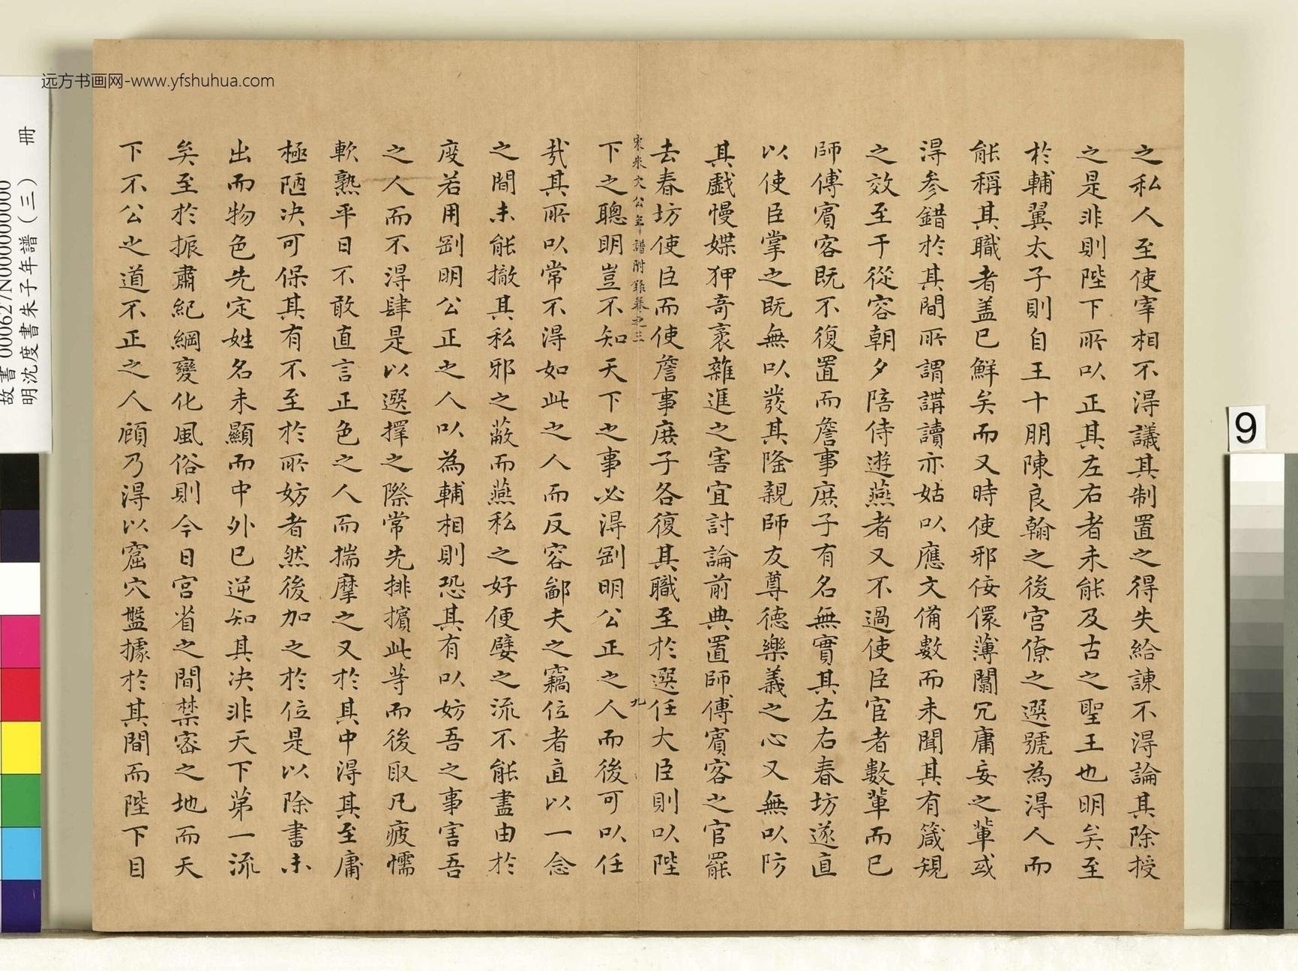 之私人至使宰相不得議其制置之得失給諫不得論其除授
之是非則陛下所以正其左右者未能及古之聖王也明矣至
於輔翼太子則自王十朋陳良翰之後宮僚之選號為得人而
能稱其職者盖已鮮矣而又時使邪佞儇薄闒冗庸妄之輩或
得參錯於其間所謂講讀亦姑以應文備數而未聞其有箴規
之效至于從容朝夕陪侍遊燕者又不過使臣宦者數輩而已
師傅賓客既不復置而詹事庶子有名無實其左右春坊遂直
以使臣掌之既無以發其隆親師友尊德樂義之心又無以防
其戲慢媟狎奇衺雜進之害宜討論前典置師傅賓客之官罷
去春坊使臣而使詹事庶子各復其職至於選任大臣則以陛
宋朱文公年譜附錄卷之三
九
下之聰明豈不知天下之事必得剛明公正之人而後可以任
哉其所以常不得如此之人而反容鄙夫之竊位者直以一念
之間未能撤其私邪之蔽而燕私之好便嬖之流不能盡由於
度若用剛明公正之人以為輔相則恐其有以妨吾之事害吾
之人而不得肆是以選擇之際常先排擯此等而後取凡疲懦
軟熟平日不敢直言正色之人而揣摩之又於其中得其至庸
極陋决可保其有不至於所妨者然後加之於位是以除書未
出而物色先定姓名未顯而中外已逆知其决非天下第一流
矣至於振肅紀綱變化風俗則今日宮省之間禁密之地而天
下不公之道不正之人顧乃得以窟穴盤據於其間而陛下目
远方书画网-www.yfshuhua.com
故書 000627N000000000
明沈度書朱子年譜(三) 冊
9